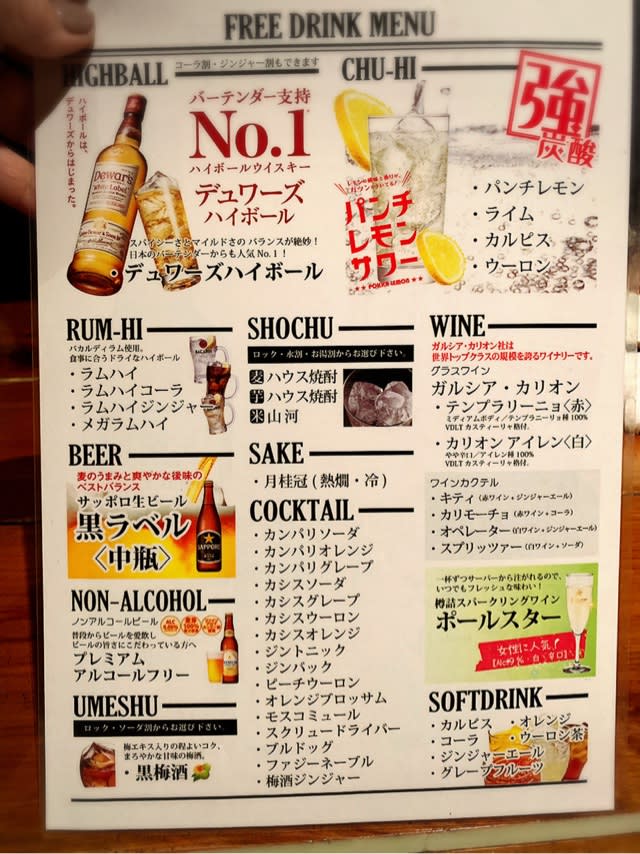 FREE DRINK MENU
HIGHBALL
コーラ割・ジンジャー割もできます
ハイボールは、
デュワーズからはじまった。
Dewar's
White Label
バーテンダー支持
No.1
ハイボールウイスキー
デュワーズ
ハイボール
スパイシーさとマイルドさの バランスが絶妙！
日本のバーテンダーからも人気 No.1！
・デュワーズハイボール
CHU-HI
強
炭酸
パンチ
レモン
サワー
POKKA LEMON
・パンチレモン
・ライム
・カルピス
・ウーロン
RUM-HI
バカルディラム使用。
食事に合うドライなハイボール
・ラムハイ
・ラムハイコーラ
・ラムハイジンジャー
・メガラムハイ
SHOCHU
ロック・水割・お湯割からお選び下さい。
麦 ハウス焼酎
芋 ハウス焼酎
米 山河
WINE
ガルシア・カリオン社は
世界トップクラスの規模を誇るワイナリーです。
グラスワイン
ガルシア・カリオン
・テンプラリーニョ〈赤〉
ミディアムボディ／テンプラニーリョ種 100%
VDLT カスティーリャ格付。
・カリオン アイレン〈白〉
やや辛口／アイレン種 100%
VDLT カスティーリャ格付。
ワインカクテル
・キティ（赤ワイン＋ジンジャーエール）
・カリモーチョ（赤ワイン＋コーラ）
・オペレーター（白ワイン＋ジンジャーエール）
・スプリッツァー（白ワイン＋ソーダ）
一杯ずつサーバーから注がれるので、
いつでもフレッシュな味わい！
樽詰スパークリングワイン
ポールスター
女性に人気！
BEER
麦のうまみと爽やかな後味の
ベストバランス
サッポロ生ビール
黒ラベル
〈中瓶〉
SAPPORO
SAKE
・月桂冠（熱燗・冷）
COCKTAIL
・カンパリソーダ
・カンパリオレンジ
・カンパリグレープ
・カシスソーダ
・カシスグレープ
・カシスウーロン
・カシスオレンジ
・ジントニック
・ジンバック
・ピーチウーロン
・オレンジブロッサム
・モスコミュール
・スクリュードライバー
・ブルドッグ
・ファジーネーブル
・梅酒ジンジャー
NON-ALCOHOL
ノンアルコールビール
普段からビールを愛飲し
ビールの旨さにこだわっている方へ
プレミアム
アルコールフリー
UMESHU
ロック・ソーダ割からお選び下さい。
梅エキス入りの程よいコク、
まろやかな甘味の梅酒。
・黒梅酒
SOFTDRINK
・カルピス ・オレンジ
・コーラ ・ウーロン茶
・ジンジャーエール
・グレープフルーツ